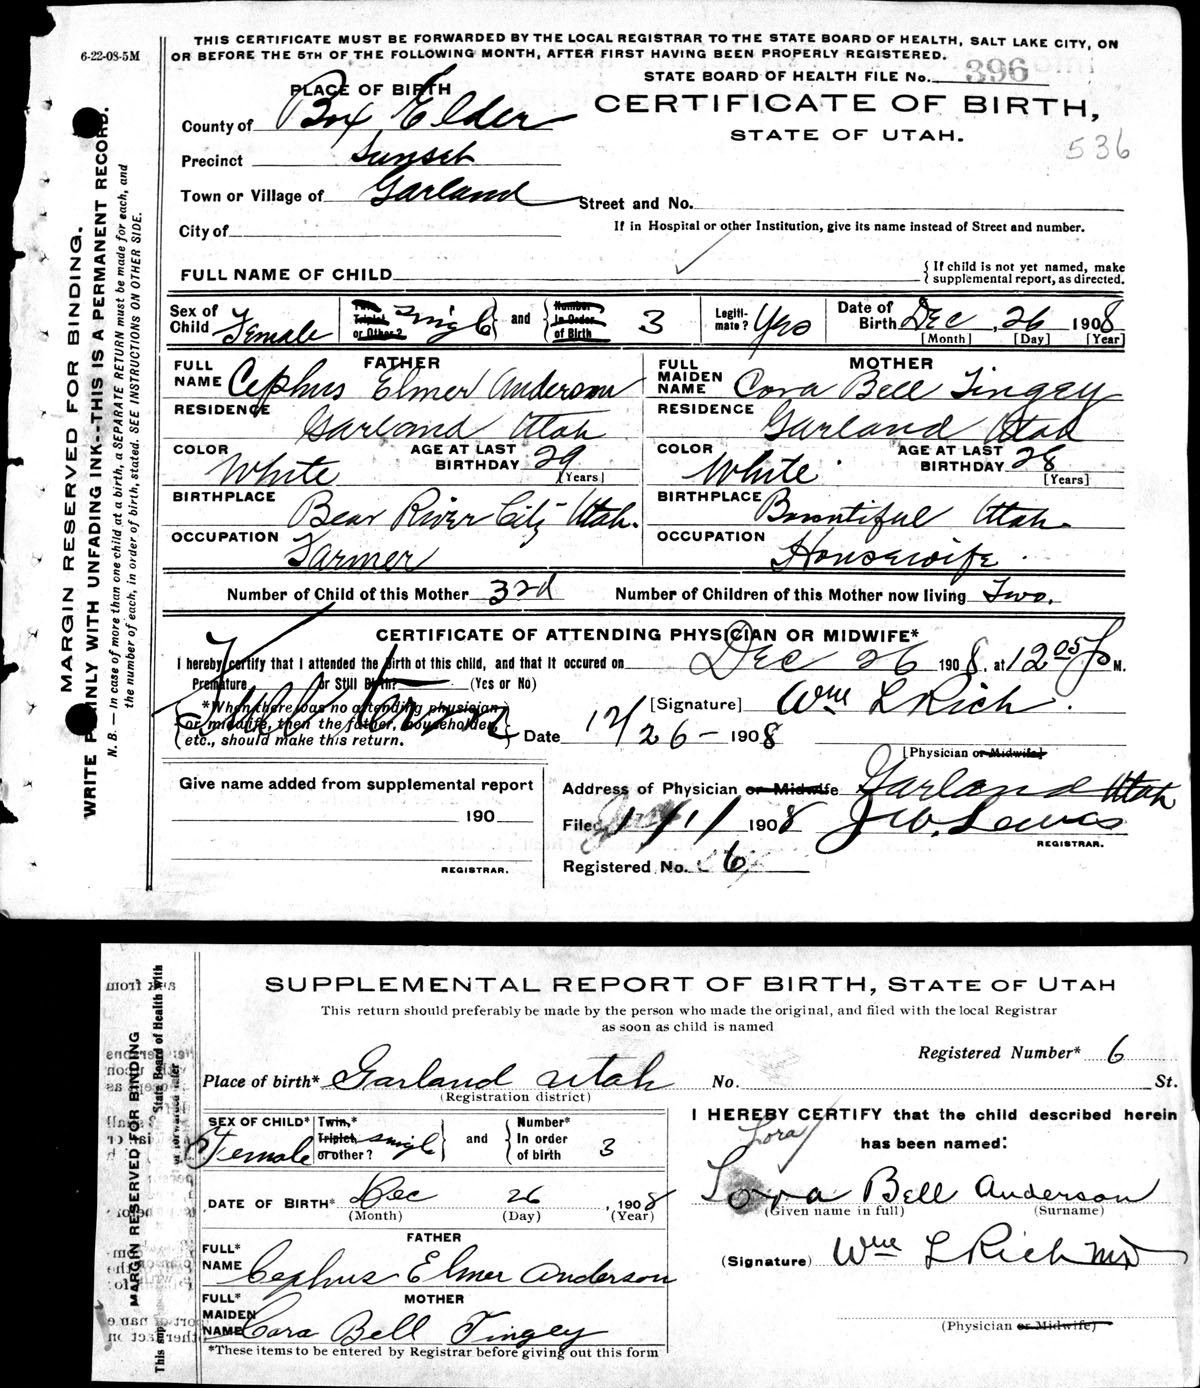 6-22-08-5M
THIS CERTIFICATE MUST BE FORWARDED BY THE LOCAL REGISTRAR TO THE STATE BOARD OF HEALTH, SALT LAKE CITY, ON
OR BEFORE THE 5TH OF THE FOLLOWING MONTH, AFTER FIRST HAVING BEEN PROPERLY REGISTERED.
STATE BOARD OF HEALTH FILE No. 396
PLACE OF BIRTH
CERTIFICATE OF BIRTH,
STATE OF UTAH.
536
County of Box Elder
Precinct Sunset
Town or Village of Garland
Street and No.
City of
If in Hospital or other Institution, give its name instead of Street and number.
FULL NAME OF CHILD
{ If child is not yet named, make
supplemental report, as directed.
Sex of Child Female
Twin Triplet or Other? Single
and
Number in Order of Birth 3
Legiti-mate? Yes
Date of Birth Dec 26 1908
[Month] [Day] [Year]
FATHER
FULL NAME Cephus Elmer Anderson
RESIDENCE Garland Utah
COLOR White
AGE AT LAST BIRTHDAY 29
[Years]
BIRTHPLACE Bear River City Utah.
OCCUPATION Farmer
MOTHER
FULL MAIDEN NAME Cora Bell Tingey
RESIDENCE Garland Utah
COLOR White
AGE AT LAST BIRTHDAY 28
[Years]
BIRTHPLACE Bountiful Utah.
OCCUPATION Housewife.
Number of Child of this Mother 3rd
Number of Children of this Mother now living Two.
CERTIFICATE OF ATTENDING PHYSICIAN OR MIDWIFE*
I hereby certify that I attended the birth of this child, and that it occured on Dec 26 1908, at 12 05 P M.
Premature or Still Birth? (Yes or No)
Full term
*When there was no attending physician
or midwife, then the father, householder,
etc., should make this return.
[Signature] Wm L Rich.
Date 12/26- 1908
[Physician or Midwife]
Give name added from supplemental report
190
REGISTRAR.
Address of Physician or Midwife Garland Utah
Filed 1/1/ 1908 J W. Lewis
REGISTRAR.
Registered No. 6
MARGIN RESERVED FOR BINDING.
WRITE PLAINLY WITH UNFADING INK--THIS IS A PERMANENT RECORD.
N. B.— In case of more than one child at a birth, a SEPARATE RETURN must be made for each, and
the number of each, in order of birth, stated. SEE INSTRUCTIONS ON OTHER SIDE.
SUPPLEMENTAL REPORT OF BIRTH, STATE OF UTAH
This return should preferably be made by the person who made the original, and filed with the local Registrar
as soon as child is named
Registered Number* 6
Place of birth* Garland Utah No. St.
(Registration district)
SEX OF CHILD* Female
Twin,* Triplet, or other? Single
and
Number* In order of birth 3
DATE OF BIRTH* Dec 26, 1908
(Month) (Day) (Year)
FATHER
FULL* NAME Cephus Elmer Anderson
MOTHER
FULL* MAIDEN NAME Cora Bell Tingey
*These items to be entered by Registrar before giving out this form
I HEREBY CERTIFY that the child described herein
has been named:
Lora
Lora Bell Anderson
(Given name in full) (Surname)
(Signature) Wm L Rich MD
(Physician or Midwife)
MARGIN RESERVED FOR BINDING
State Board of Health with